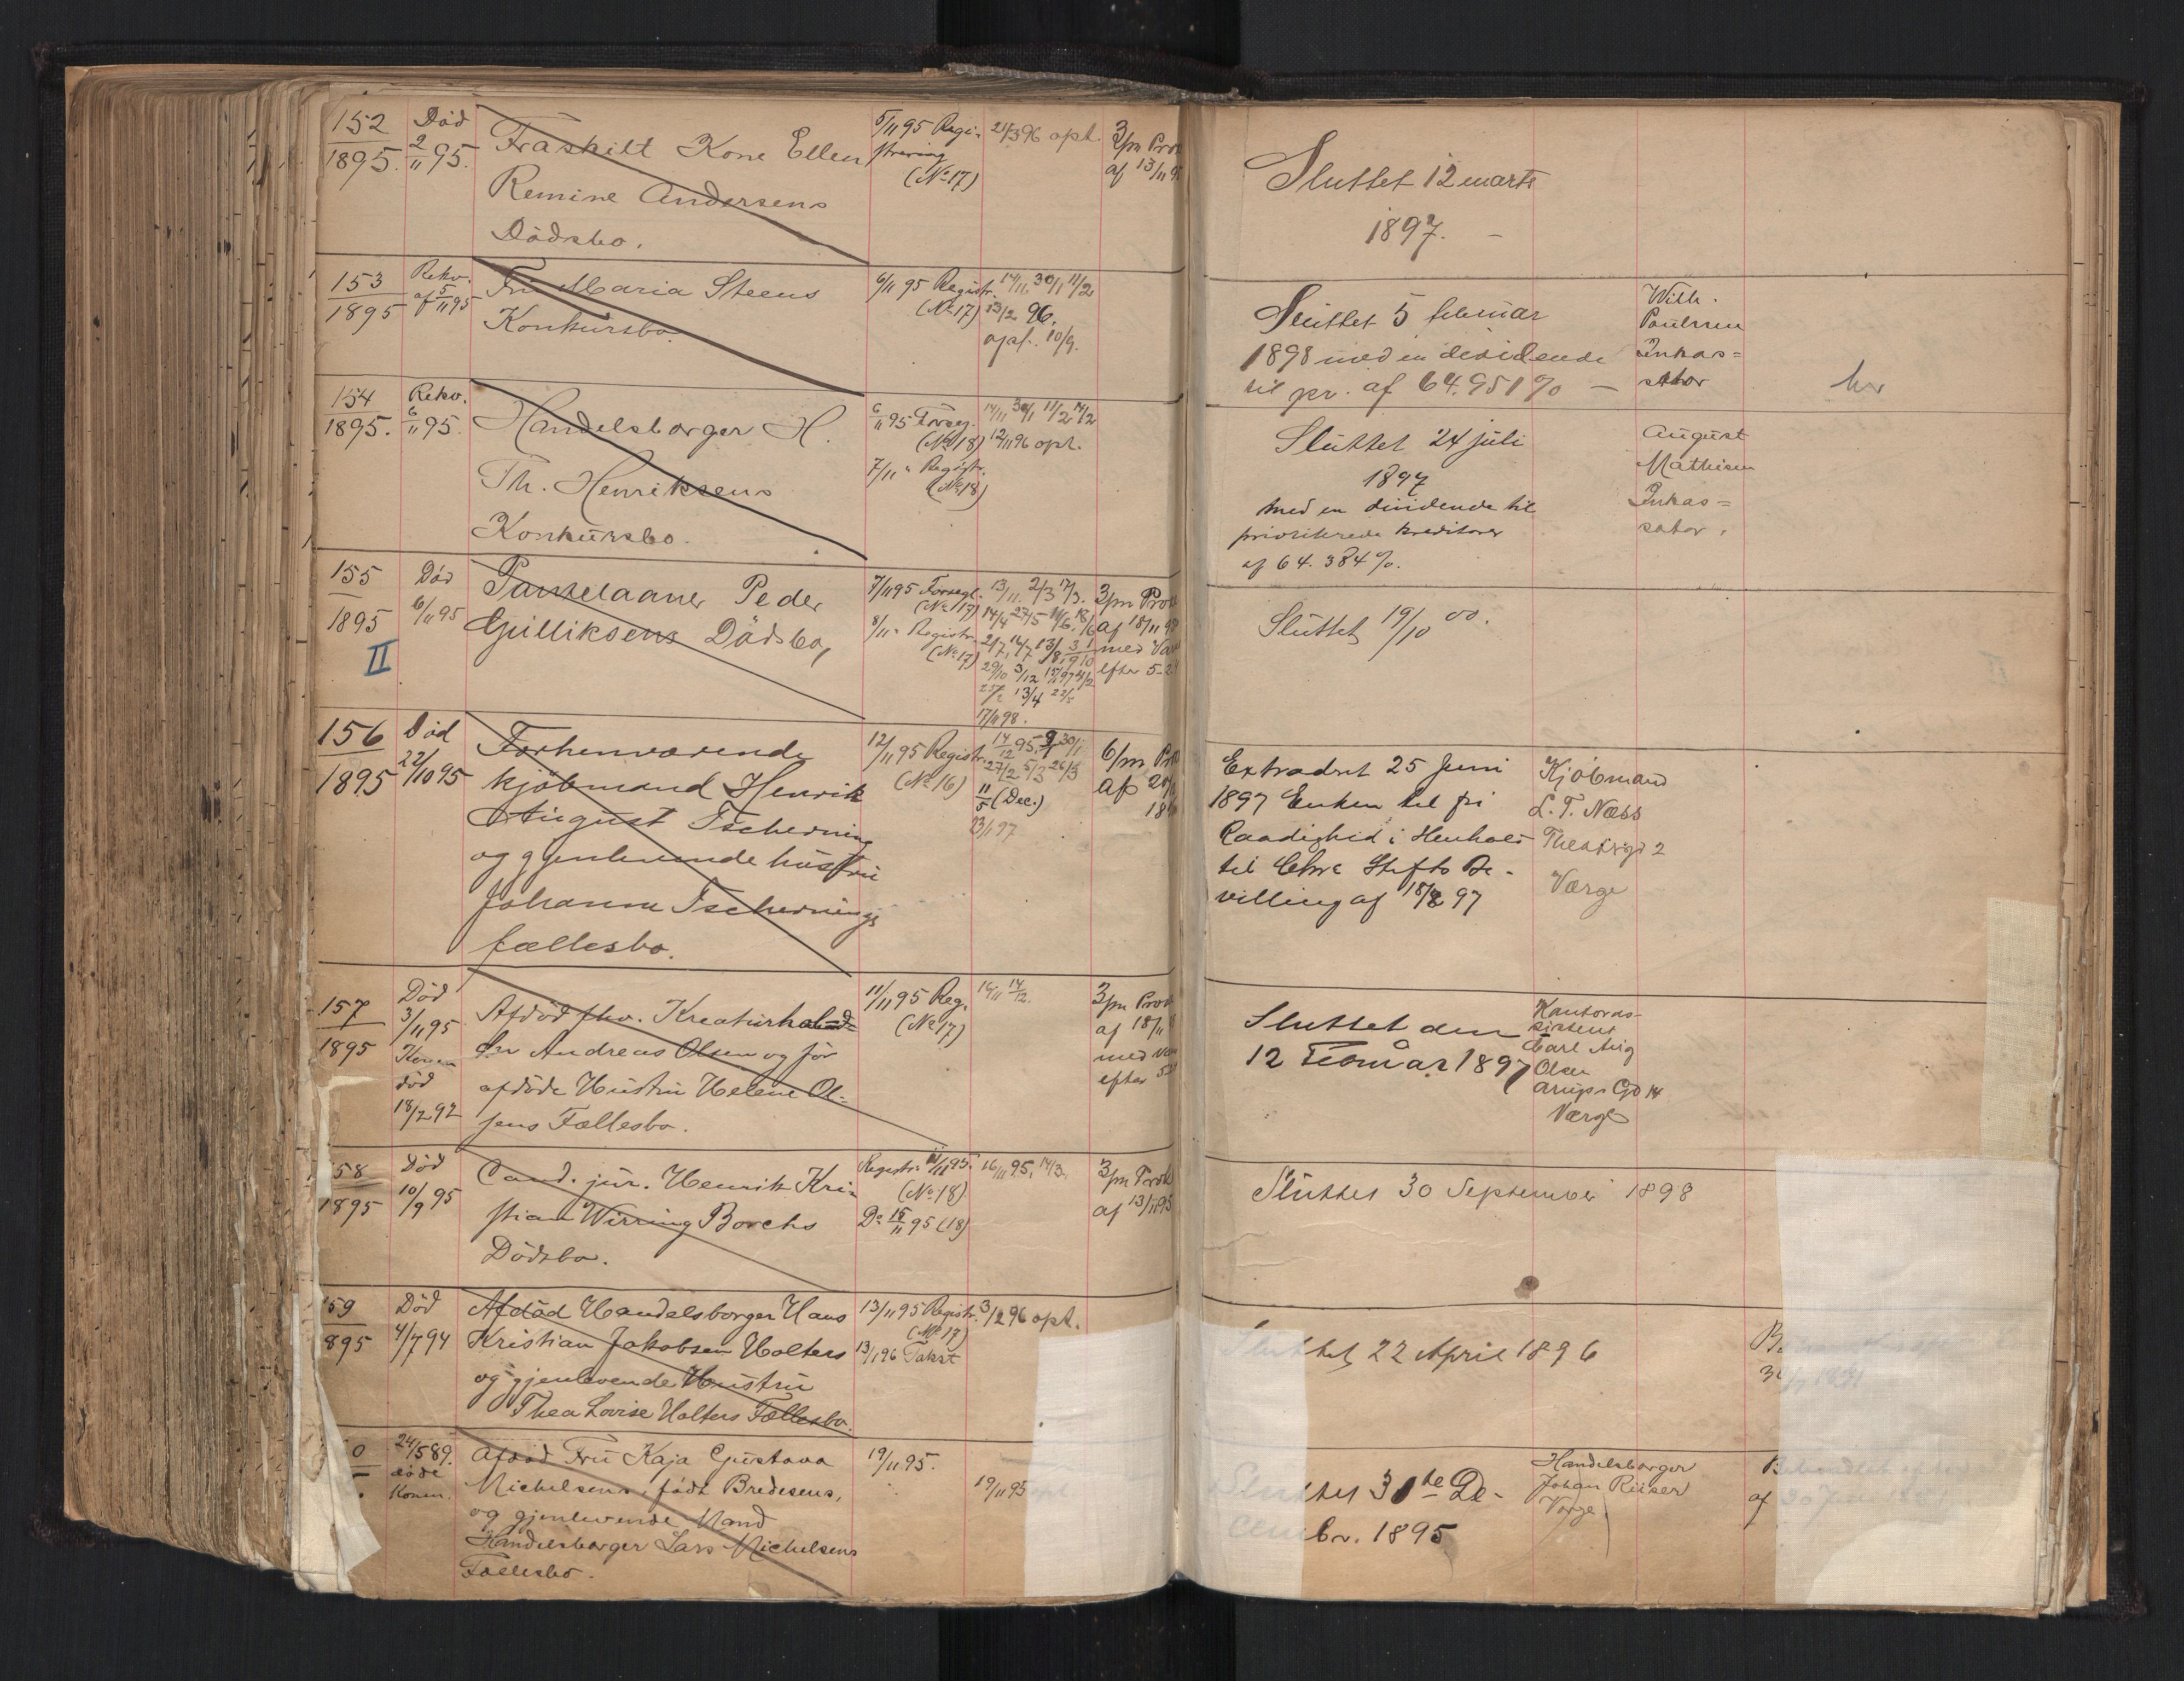 152
1895.
Död
2/11 95.
Fraskilt Kone Ellen
Remine Andersens
Dödsbo.
5/11 95 Regi-
strering
(No 17)
21/3 96 opt.
3/m Pro
af 13/11 9
Sluttet 12 marts
1897. –
153
1895
Rekv.
af 5/11 95
Fru Maria Steens
Konkursbo.
6/11 95 Registr.
(No 17)
14/11, 30/1 11/2
13/2 96.
10/9.
Sluttet 5 februar
1898 med en dividende
til pr. af 64.951 % –
Wilh.
Paulssen
Inkas=
sator
her
154
1895.
Rekv.
6/11 95.
Handelsborger H.
Th. Henriksens
Konkursbo.
6/11 95 Forseg.
(No 18)
7/11 " Registr.
(No 18)
14/11 30/1 11/2 14/2
12/11 96 opt.
Sluttet 24 juli
1897
med en dividende til
prioriterede kreditorer
af 64.384 %.
August
Mathisen
Inkas=
sator.
155
1895
II
Död
6/11 95
Pantelaaner Peder
Gulliksens Dödsbo,
7/11 95 Forsegl.
(No 17)
8/11 " Registr.
(No 17)
13/11 2/3 17/3.
14/4 27/5
13/4 22/5
17/11 98.
3/m Pro
af 18/11 9
med Va
efter 5-2
Sluttet 19/10 00.
156
1895
Död
22/10 95
Forhenværende
kjöbmand Henrik
August Tscherning
og gjenlevende hustru
Johanne Tschernings
fællesbo.
12/11 95 Registr.
(No 16)
14/12 95, 9/1 30/1
27/2 5/3 26/3
11/5 (Dec.)
23/1 97
6/m Pr
af 20/
18
Extraderet 25 juni
1897 Enken til fri
Raadighed i Henhold
til Chra Stifts Be-
villing af 18/2 97
Kjöbmand
L. T. Næss
Theatergd 2
Værge
157
1895
Död
3/11 95
Konen
död
18/2 92
Afdöd fhv. Kreaturhand=
ler Andreas Olsen og för
afdöde Hustru Helene Ol-
sens Fællesbo.
11/11 95 Reg.
(No 17)
16/11 14/12.
3/m Pro
af 18/11
med va
efter 5
Sluttet den
12 Februar 1897
Kontoras-
sistent
Carl Aug
Olsen
Arups Gd 14
Værge
158
1895
Död
10/9 95
Cand. jur. Henrik Kri=
stian Wirring Borchs
Dödsbo.
Registr. 11/11 95.
(No 18)
Do 15/11 95 (18)
16/11 95, 14/3.
3/m Prok
af 13/11 95
Sluttet 30 September 1898
59
895
Död
4/7 94
Afdöd Handelsborger Hans
Kristian Jakobsen Holters
og gjenlevende Hustru
Thea Lovise Holters Fællesbo.
13/11 95 Registr.
(No 17)
13/1 96 Takst
3/2 96 opt.
Sluttet 22 April 1896
0
24/5 89.
döde
Konen.
Afdöd Fru Kaja Gustava
Michelsens, födt Bredesens,
og gjenlevende Mand
Handelsborger Lars Michelsens
Fællesbo.
19/11 95.
19/11 95
Sluttet 31te De-
cembr. 1895
Handelsborger
Johan Riiser
Værge